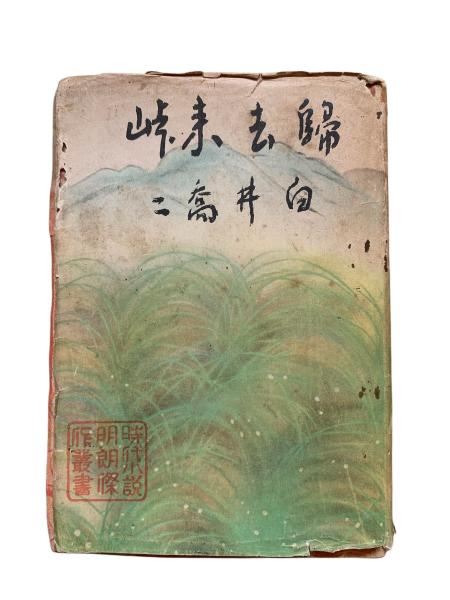 歸去来峠
白井喬二
時代小説
明朗傑
作叢書